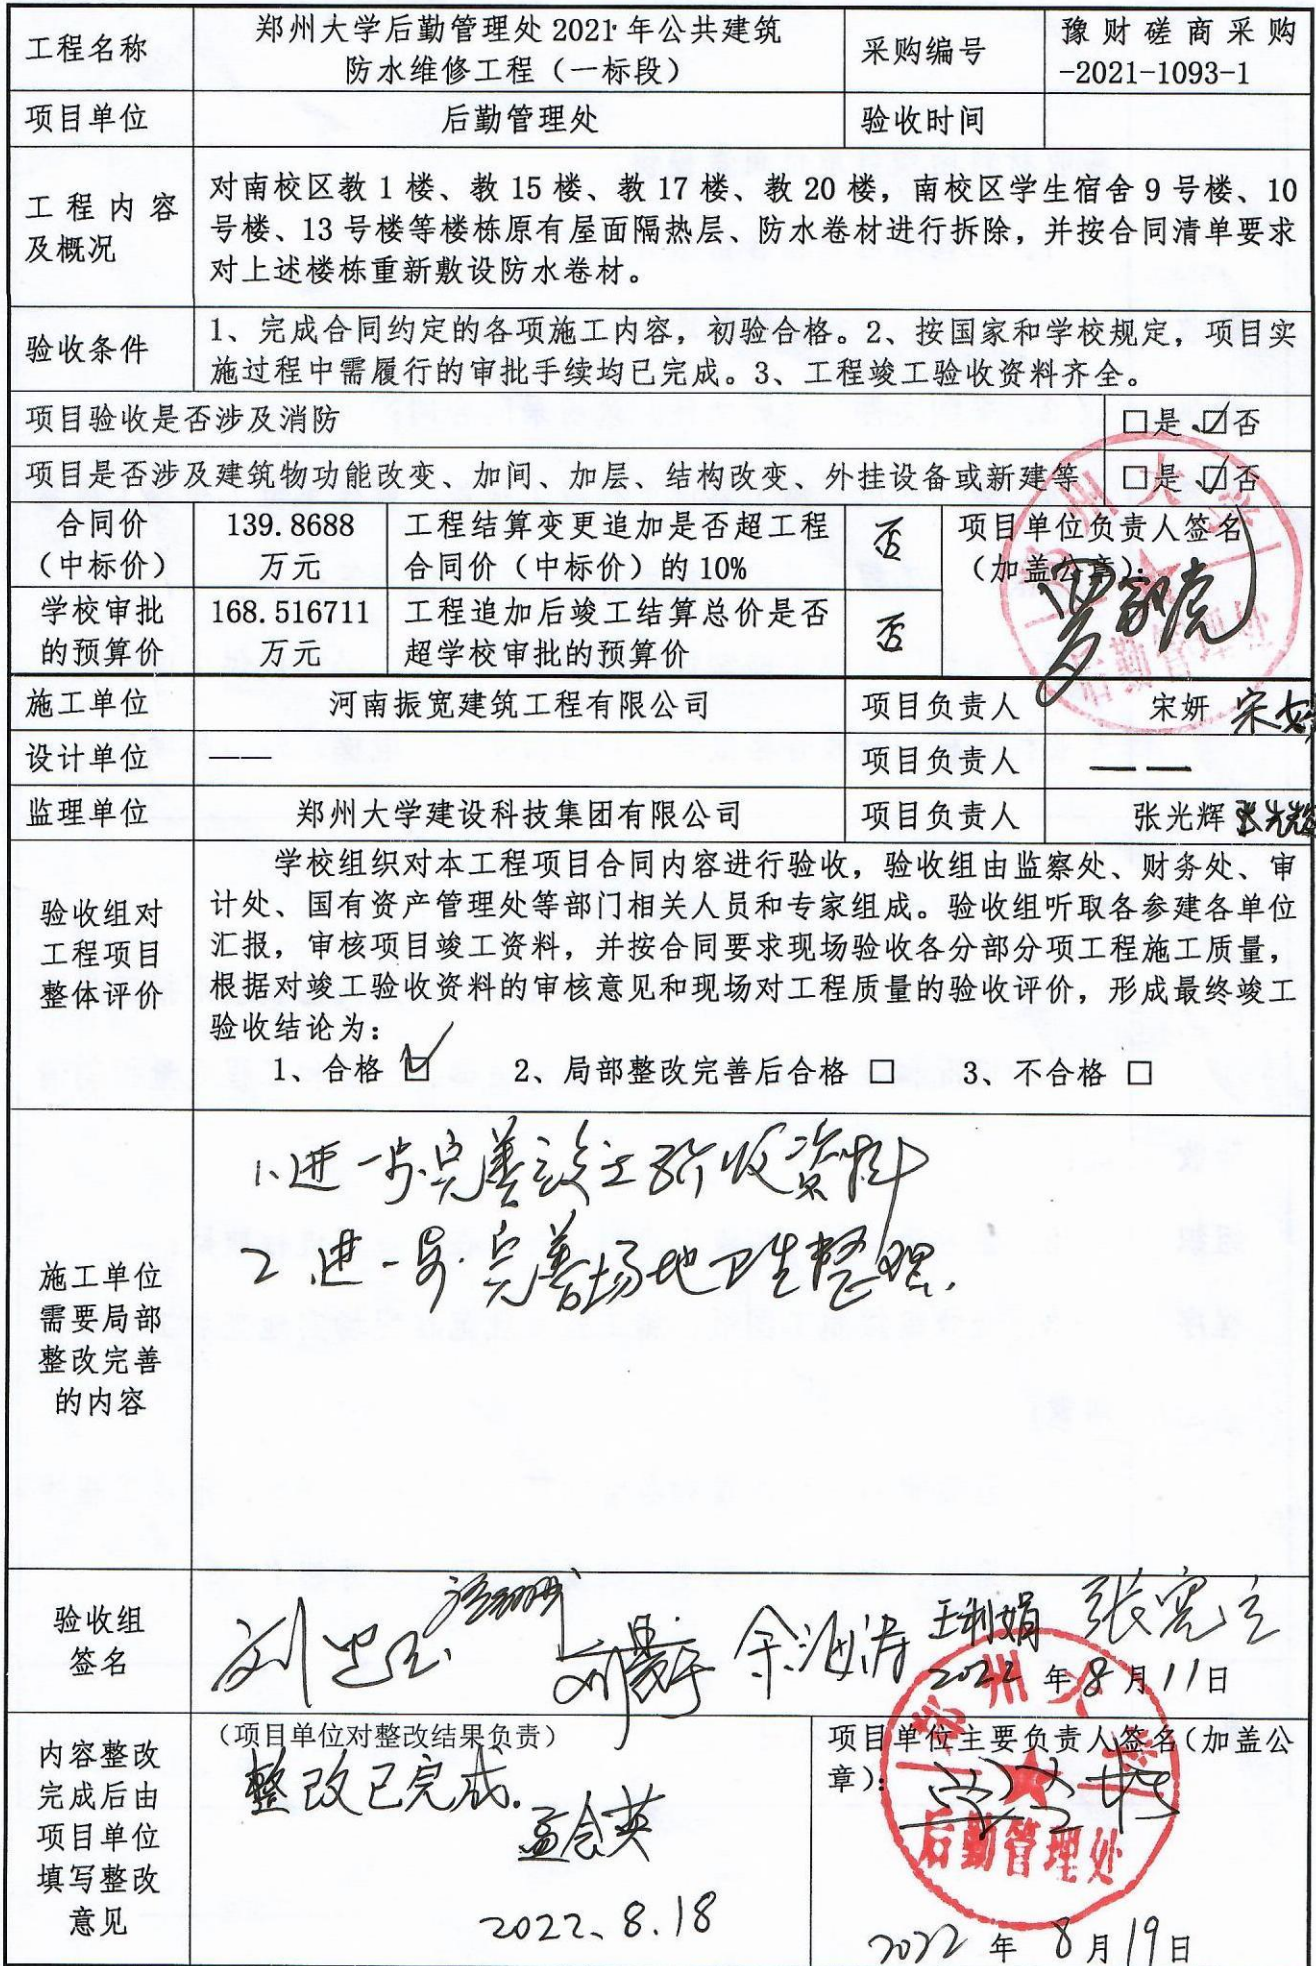 工程名称
郑州大学后勤管理处 2021 年公共建筑
防水维修工程（一标段）
采购编号
豫财磋商采购
-2021-1093-1
项目单位
后勤管理处
验收时间
工程内容
及概况
对南校区教 1 楼、教 15 楼、教 17 楼、教 20 楼，南校区学生宿舍 9 号楼、10
号楼、13 号楼等楼栋原有屋面隔热层、防水卷材进行拆除，并按合同清单要求
对上述楼栋重新敷设防水卷材。
验收条件
1、完成合同约定的各项施工内容，初验合格。2、按国家和学校规定，项目实
施过程中需履行的审批手续均已完成。3、工程竣工验收资料齐全。
项目验收是否涉及消防
□是 ☑否
项目是否涉及建筑物功能改变、加间、加层、结构改变、外挂设备或新建等
□是 ☑否
合同价
（中标价）
139.8688
万元
工程结算变更追加是否超工程
合同价（中标价）的 10%
否
项目单位负责人签名
（加盖公章）：
学校审批
的预算价
168.516711
万元
工程追加后竣工结算总价是否
超学校审批的预算价
否
施工单位
河南振宽建筑工程有限公司
项目负责人
宋妍 宋妍
设计单位
——
项目负责人
——
监理单位
郑州大学建设科技集团有限公司
项目负责人
张光辉 张光辉
验收组对
工程项目
整体评价
学校组织对本工程项目合同内容进行验收，验收组由监察处、财务处、审
计处、国有资产管理处等部门相关人员和专家组成。验收组听取各参建各单位
汇报，审核项目竣工资料，并按合同要求现场验收各分部分项工程施工质量，
根据对竣工验收资料的审核意见和现场对工程质量的验收评价，形成最终竣工
验收结论为：
1、合格 ☑ 2、局部整改完善后合格 □ 3、不合格 □
施工单位
需要局部
整改完善
的内容
1、进一步完善竣工验收资料
2 进一步完善场地卫生整理.
验收组
签名
余海涛 王利娟 张宽立
2022 年 8 月 11 日
内容整改
完成后由
项目单位
填写整改
意见
（项目单位对整改结果负责）
整改已完成.
孟会英
2022、8.18
项目单位主要负责人签名(加盖公
章)：
郑州大学
后勤管理处
2022 年 8 月 19 日